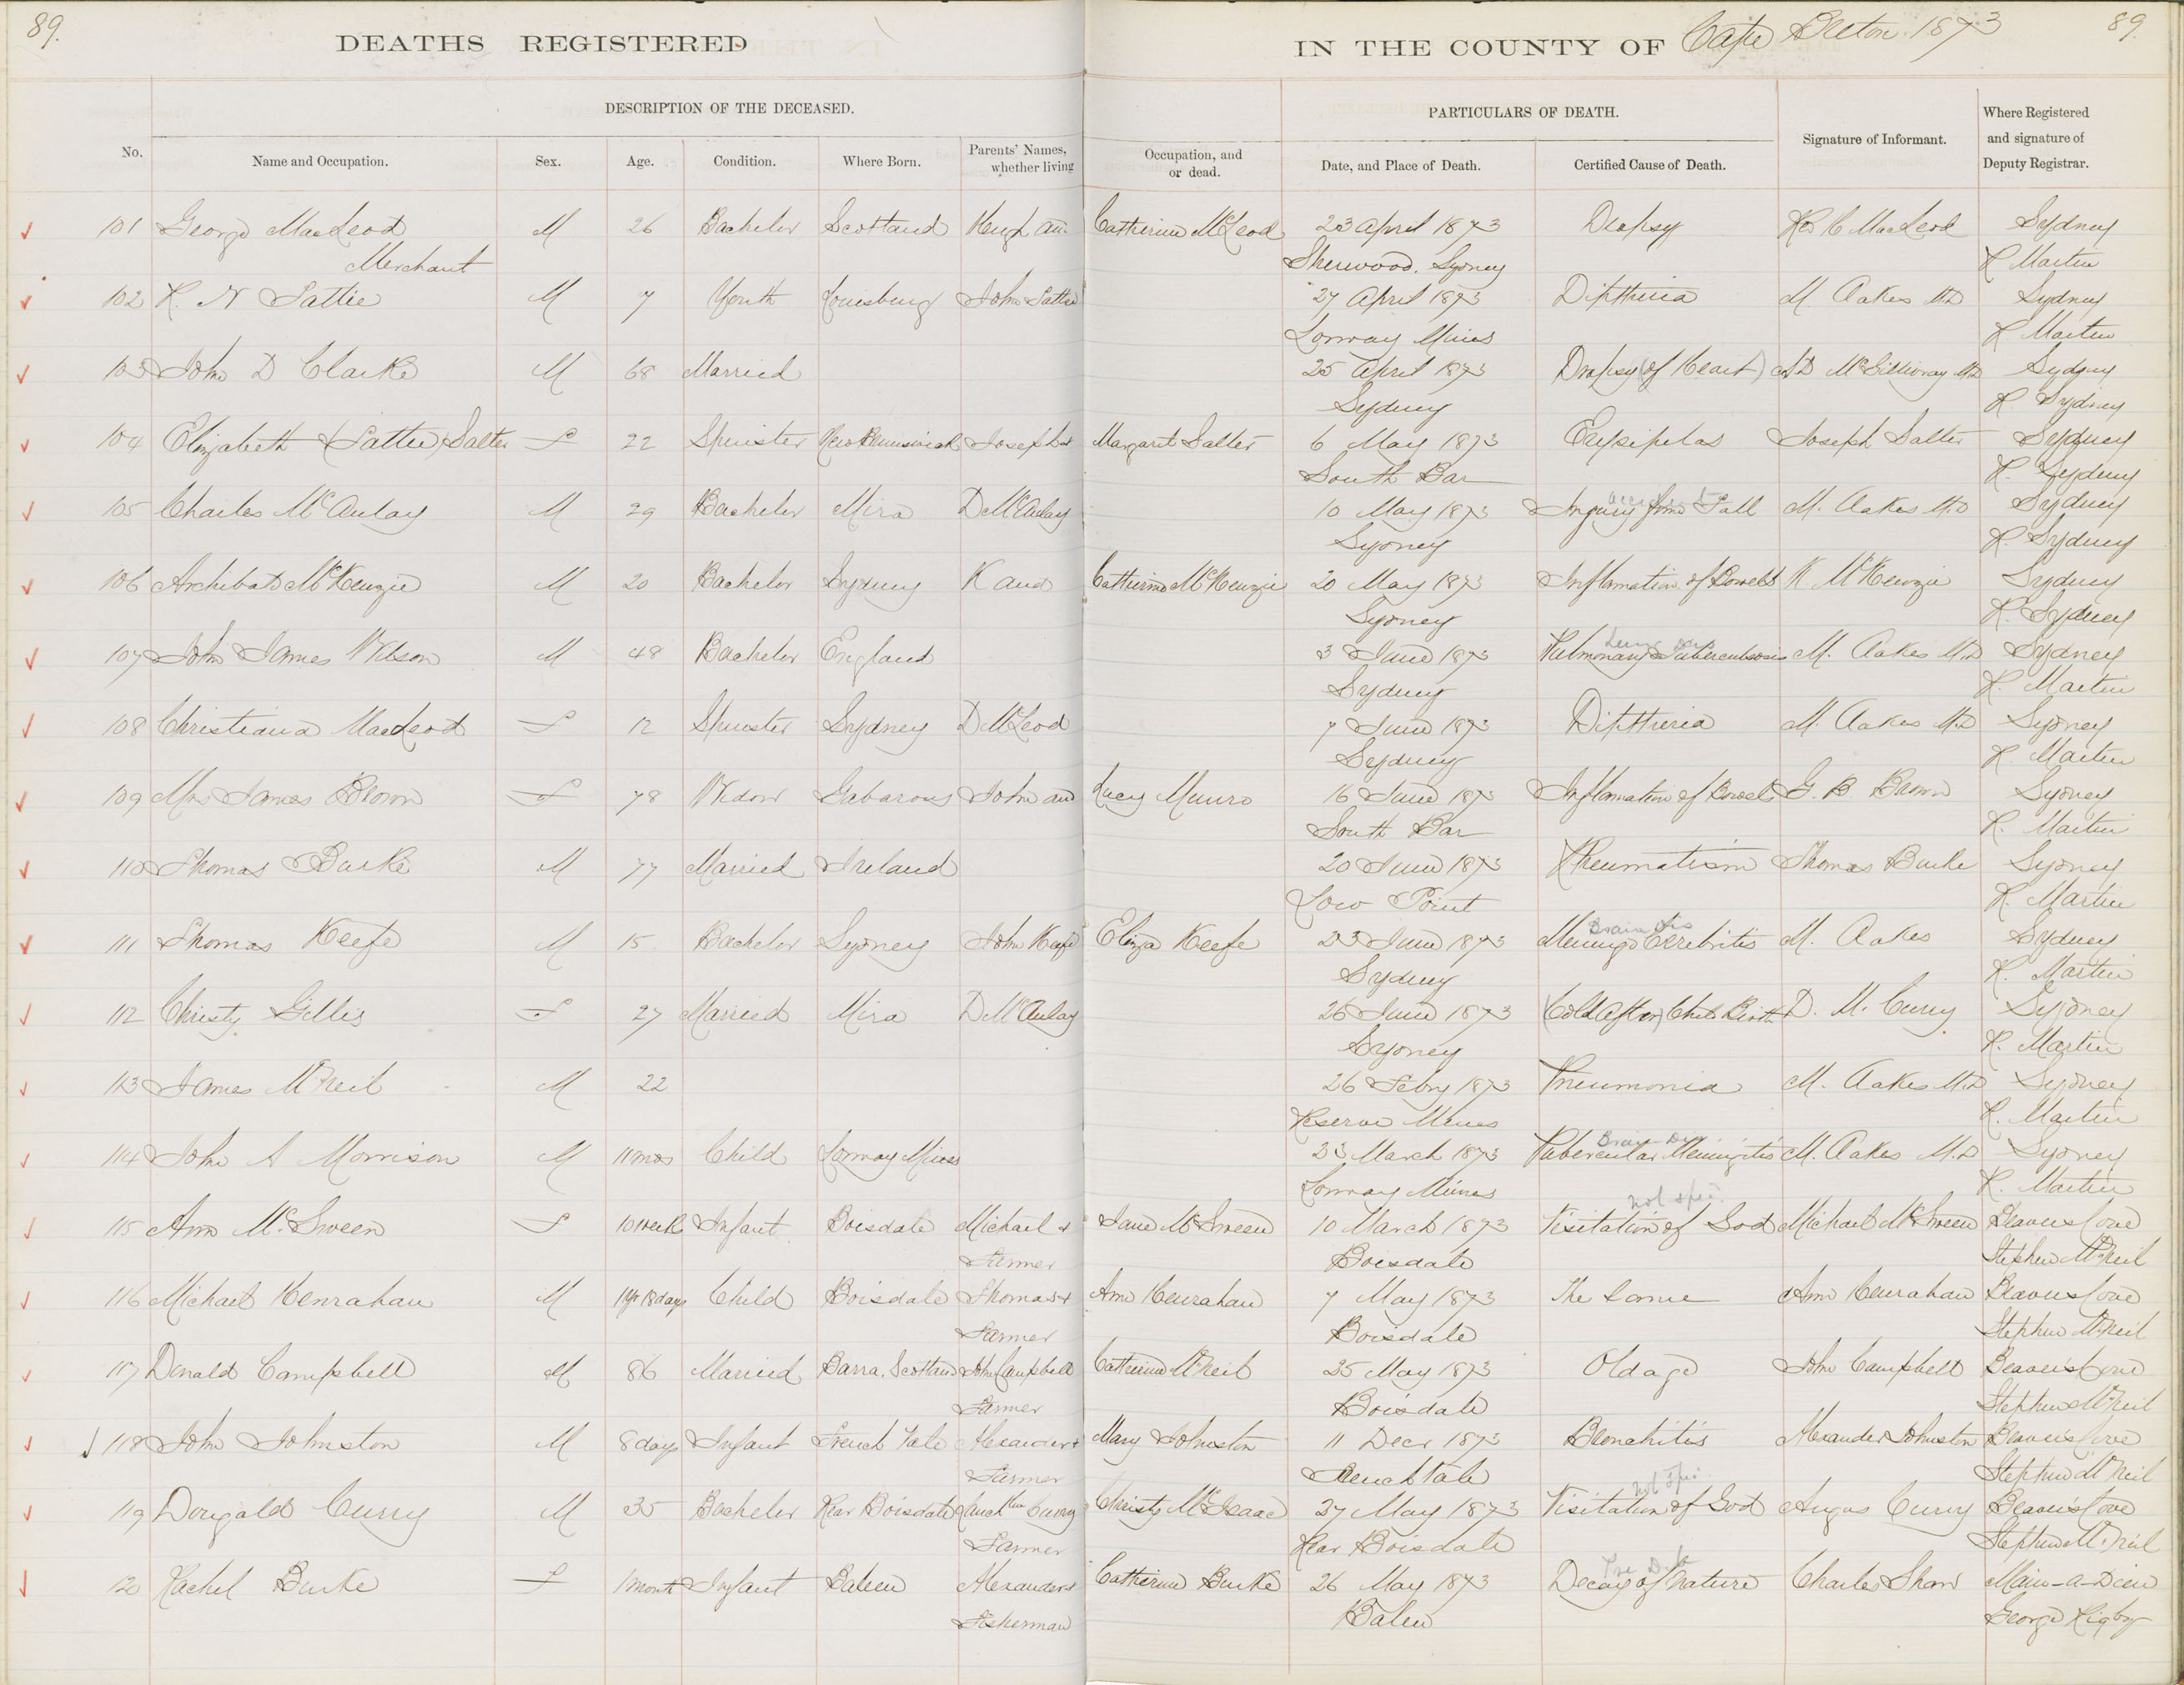 89.
DEATHS REGISTERED
IN THE COUNTY OF Cape Breton 1873
89.
DESCRIPTION OF THE DECEASED.
PARTICULARS OF DEATH.
No.
Name and Occupation.
Sex.
Age.
Condition.
Where Born.
Parents' Names, whether living
Occupation, and or dead.
Date, and Place of Death.
Certified Cause of Death.
Signature of Informant.
Where Registered and signature of Deputy Registrar.
101 George MacLeod M 26 Bachelor Scotland Hugh an Catherine McLeod 23 April 1873 Dropsy MacLeod Sydney
Merchant Sherwood, Sydney R Martin
102 R. N Sattie M 7 Youth Louisburg John Sattie 27 April 1873 Diptheria M. Oakes MD Sydney
Lorway Mines R Martin
103 John D Clarke M 68 Married 25 April 1873 Dropsy (of Heart) McGillivray MD Sydney
Sydney R Sydney
104 Elizabeth (Sattie) Salter F 22 Spinster New Brunswick Joseph + Margaret Salter 6 May 1873 Erysipelas Joseph Salter Sydney
South Bar R. Sydney
accident
105 Charles McAulay M 29 Bachelor Mira D McAulay 10 May 1873 Injury from Fall M. Oakes M.D Sydney
Sydney R. Sydney
106 Archibald McKenzie M 20 Bachelor Sydney K and Catherine McKenzie 20 May 1873 Inflamation of Bowels K McKenzie Sydney
Sydney R. Sydney
107 John James Wilson M 48 Bachelor England 3 June 1873 Pulmonary Tuberculosis M. Oakes M.D Sydney
Sydney R. Martin
108 Christiana MacLeod F 12 Spinster Sydney D McLeod 7 June 1873 Diptheria M. Oakes M.D Sydney
Sydney R. Martin
109 Mrs James Brown F 78 Widow Gabarous John and Lucy Munro 16 June 1873 Inflamation of Bowels G. B. Brown Sydney
South Bar R. Martin
110 Thomas Burke M 77 Married Ireland 20 June 1873 Rheumatism Thomas Burke Sydney
Low Point R. Martin
Brain Dis
111 Thomas Keefe M 15 Bachelor Sydney John Keefe Eliza Keefe 23 June 1873 Meningo Cerebritis M. Oakes Sydney
Sydney R. Martin
112 Christy Gillis F 27 Married Mira D McAulay 26 June 1873 (Cold After) Child Birth D. M. Curry Sydney
Sydney R. Martin
113 James McNeil M 22 26 Febry 1873 Pneumonia M. Oakes M.D Sydney
Reserve Mines R. Martin
Brain Dis
114 John A Morrison M 11 mos Child Lorway Mines 23 March 1873 Tubercular Meningitis M. Oakes M.D Sydney
Lorway Mines R. Martin
not spec.
115 Ann McSween F 10 week Infant Boisdale Michael + Jane McSween 10 March 1873 Visitation of God Michael McSween Beavers Cove
Farmer Boisdale Stephen McNeil
116 Michael Henrahan M 1 yr 18 days Child Boisdale Thomas + Ann Henrahan 7 May 1873 The Same Ann Henrahan Beavers Cove
Farmer Boisdale Stephen McNeil
117 Donald Campbell M 86 Married Barra, Scotland John Campbell Catherine McNeil 25 May 1873 Old age John Campbell Beavers Cove
Farmer Boisdale Stephen McNeil
118 John Johnston M 8 days Infant French Vale Alexander + Mary Johnston 11 Decr 1873 Bronchitis Alexander Johnston Beavers Cove
Farmer French Vale Stephen McNeil
not spec.
119 Dougald Curry M 35 Bachelor Rear Boisdale Lauchlin Curry Christy McIsaac 27 May 1873 Visitation of God Angus Curry Beavers Cove
Farmer Rear Boisdale Stephen McNeil
120 Rachel Burke F 1 month Infant Baleen Alexander + Catherine Burke 26 May 1873 Decay of Nature Charles Shaw Main-a-Dieu
Fisherman Balen George Rigby